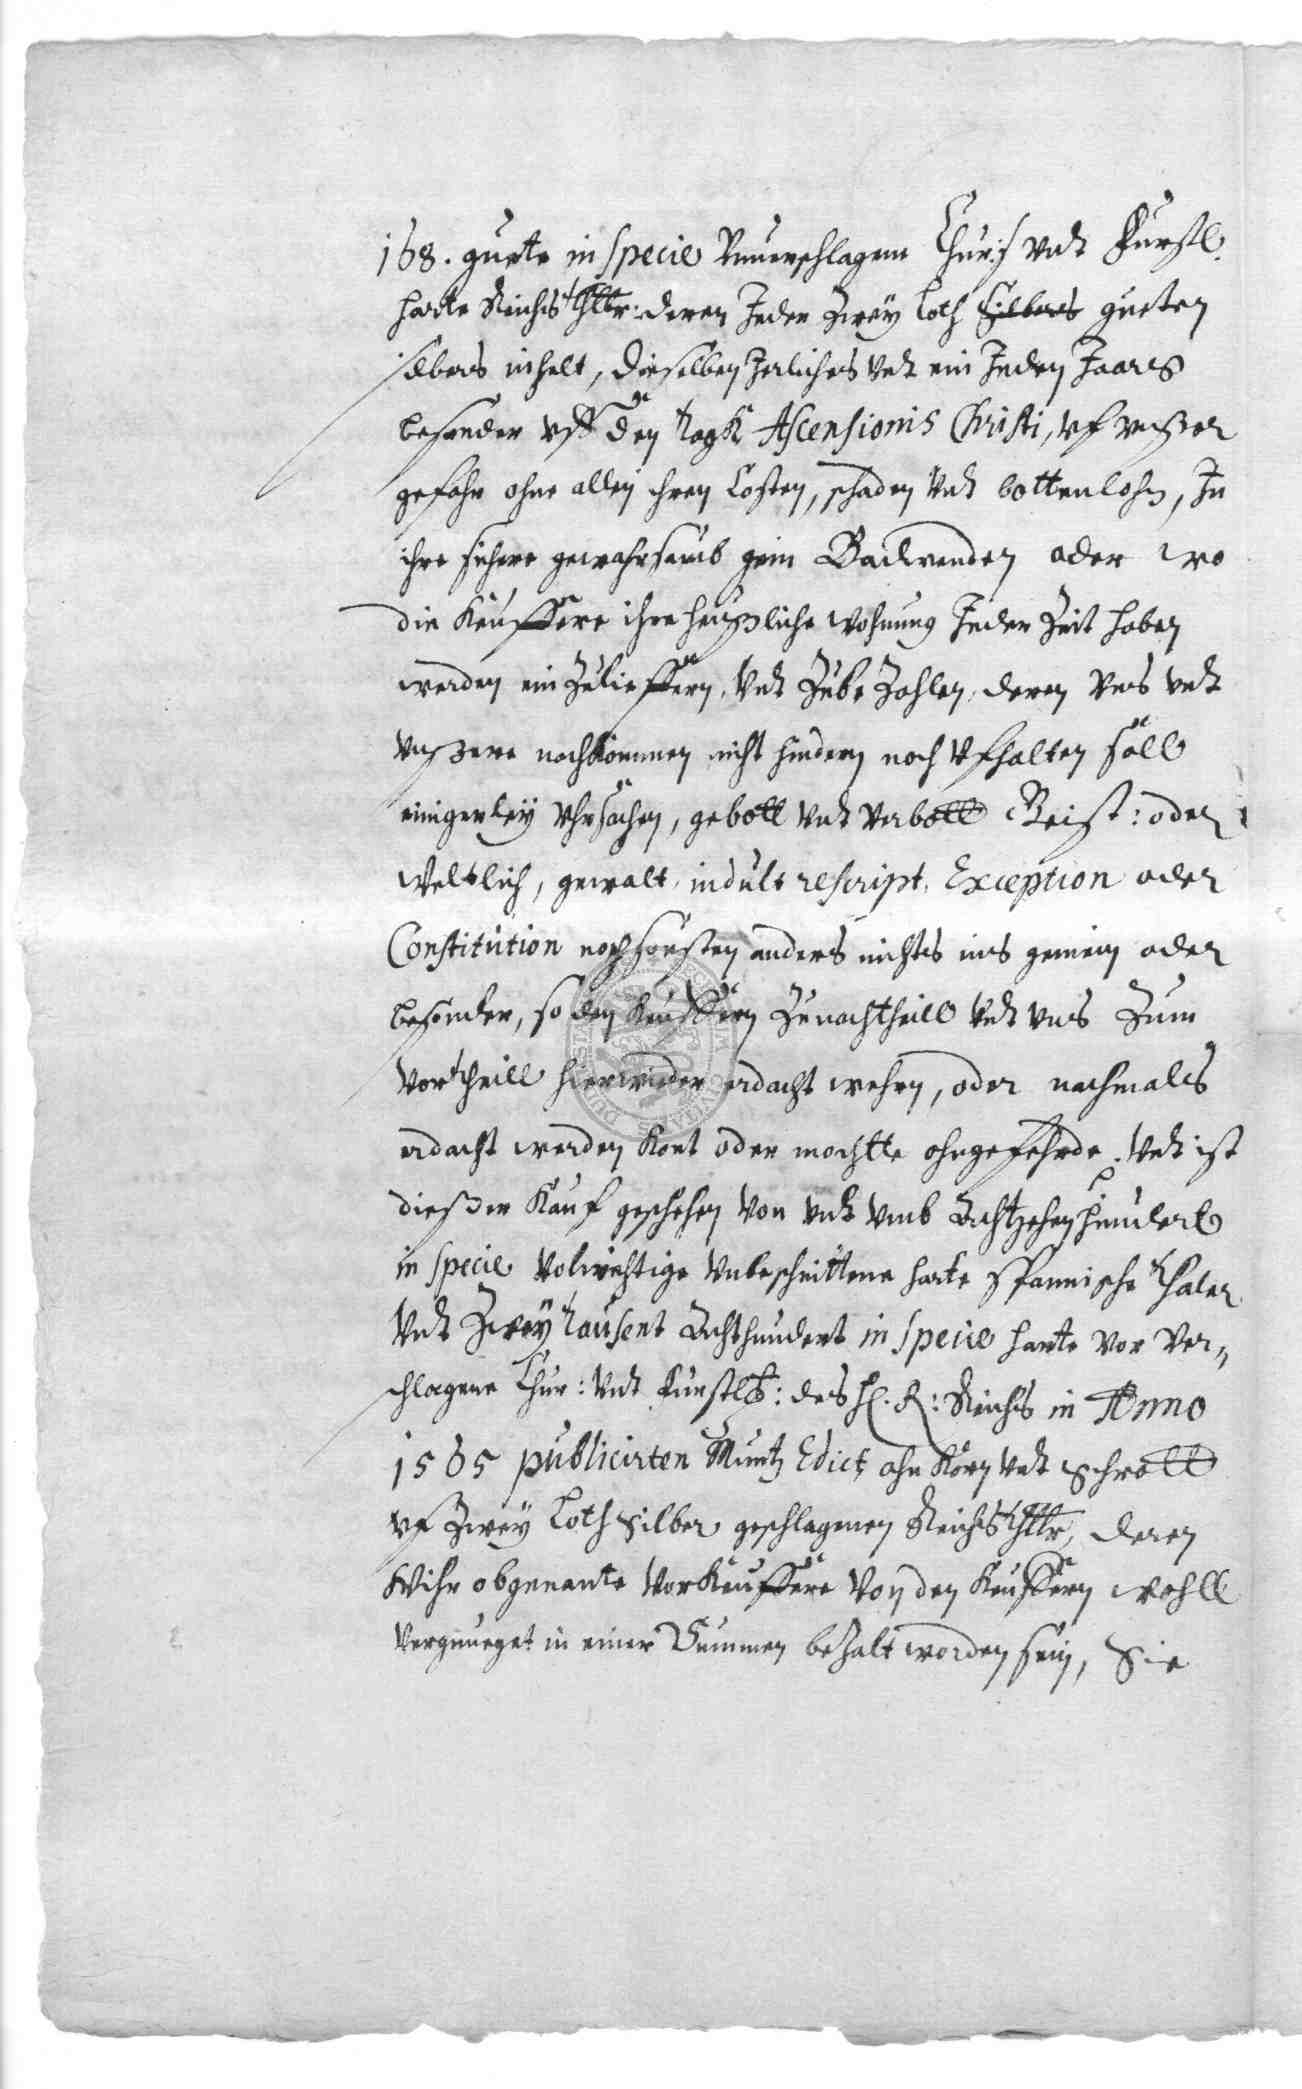 168. guete in specie Unuerschlagene Chur: Undt Fürstl.
harte Reichsthlr: deren Jeder Zwey Loth Silbers gueten
silbers inhelt, dieselben Jerliches Undt ein Jeden Jaars
besonder uff den tagk Ascensionis Christi, uf unßer
gefahr ohne allen ihren Costen, schaden Undt bottenlohn, In
ihre sichere gewahrsamb gein oder wo
die Keuffere ihre heußliche wohnung Jeder Zeit haben
werden ein Zulieffern, Undt Zube Zahlen, deren Uns undt
Unßere nachkommen nicht hindern noch Ufhalten soll
einigerley Uhrsachen, gebott Undt Verbott Geist: oder
Weltlich, gewalt, indult rescript, Exception oder
Constitution noch sonsten anders nichts ins gemein oder
besonder, so den Keuffern Zu nachtheill Undt Uns Zum
Vortheill hierwieder erdacht wehren, oder nachmals
erdacht werden Kont oder mochtte ohngefehrde. Undt ist
dießer Kauf geschehen Von undt Umb Achtzehenhundert
in specie Volwichtige Unbeschnittene harte Spannische thaler
Undt Zwey tausent Achthundert in specie harte Vor Ver„
schlagene Chur: Undt Furstl: des Hl. R: Reichs in Anno
1565 publicirten Muntz Edict, ahn Korn Undt Schrott
uf Zwey Loth Silber geschlagenen Reichsthlr, deren
Wihr obgenante VorKeuffere Von den Keuffern wohll
Vergnueget in einer Summen beZalt worden sein, Sie